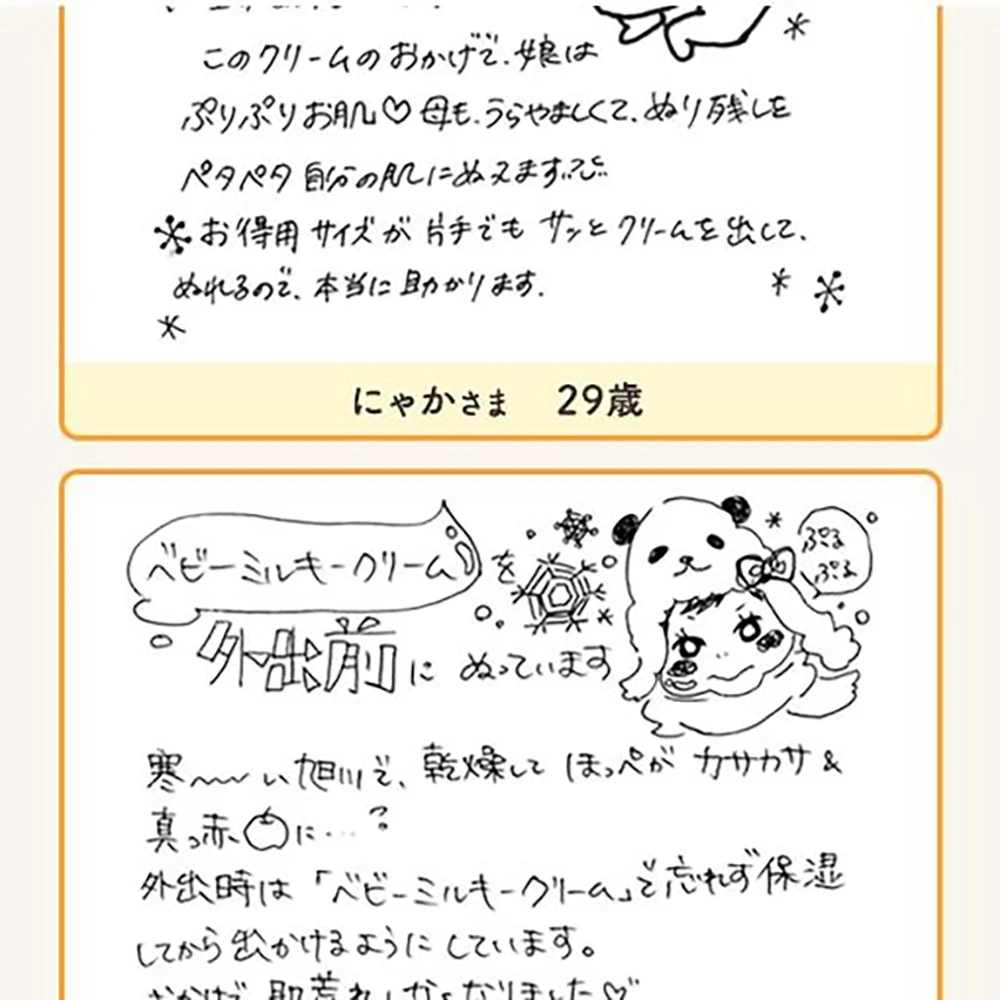 このクリームのおかげで、娘は
ぷりぷりお肌♡母も、うらやましくて、ぬり残しを
ペタペタ自分の肌にぬってます
*お得用サイズが片手でもサッとクリームを出して、
ぬれるので、本当に助かります。
にゃかさま 29歳
ベビーミルキークリームを
ぷる
ぷる
外出前にぬっています
寒〜〜い旭川で、乾燥してほっぺがカサカサ&
真っ赤に…?
外出時は「ベビーミルキークリーム」で忘れず保湿
してから出かけるようにしています。
おかげで肌荒れしなくなりました♡